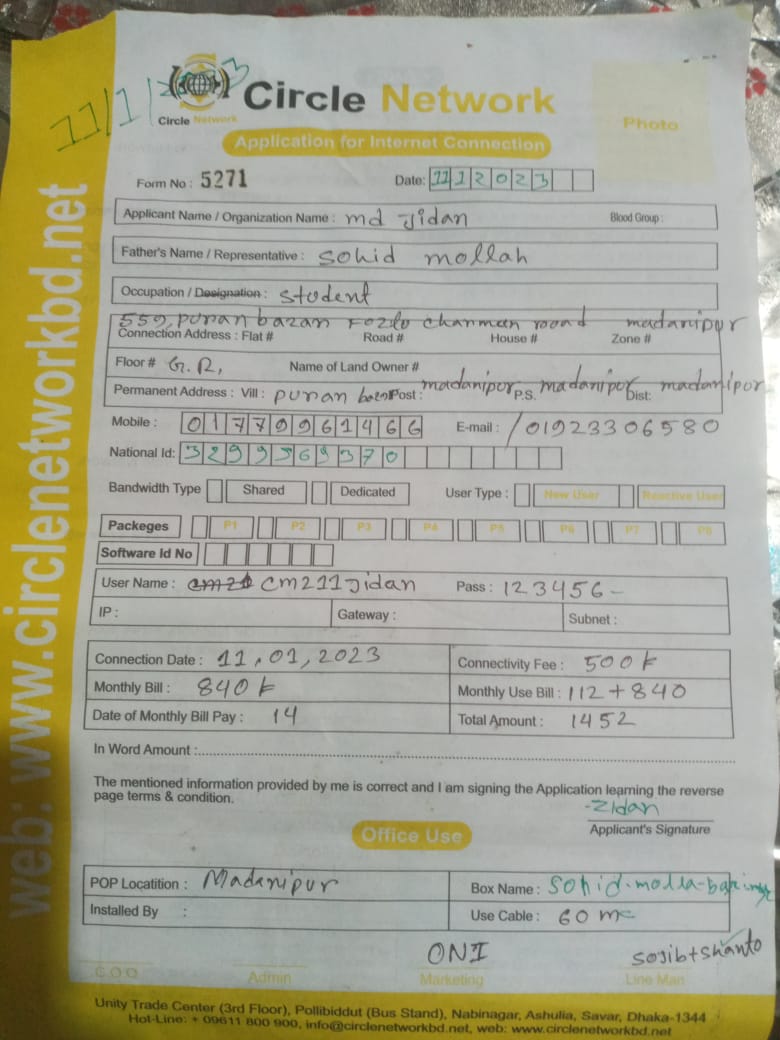 11/1/2023
Circle Network
Circle Network
Application for Internet Connection
Photo
Form No : 5271
Date: 11 1 2 0 2 3
Applicant Name / Organization Name : md Jidan
Blood Group :
Father's Name / Representative : Sohid mollah
Occupation / Designation : Student
559, puran bazar Fozlo charman rooad madaripur
Connection Address : Flat # Road # House # Zone #
Floor # G.R, Name of Land Owner #
Permanent Address : Vill : puran bazar Post : madaripur P.S. madaripur Dist: madaripur
Mobile : 01779961466 E-mail : /01923306580
National Id: 3299569370
Bandwidth Type Shared Dedicated User Type : New User Reactive User
Packeges P1 P2 P3 P4 P5 P6 P7 P8
Software Id No
User Name : cm211Jidan Pass : 123456-
IP : Gateway : Subnet :
Connection Date : 11,01,2023 Connectivity Fee : 500k
Monthly Bill : 840k Monthly Use Bill : 112+840
Date of Monthly Bill Pay : 14 Total Amount : 1452
In Word Amount :
The mentioned information provided by me is correct and I am signing the Application learning the reverse
page terms & condition.
Zidan
Applicant's Signature
Office Use
POP Locatition : Madaripur Box Name : Sohid-molla-
Installed By : Use Cable : 60 m
ONI sojib+shanto
C.O.O Admin Marketing Line Man
Unity Trade Center (3rd Floor), Pollibiddut (Bus Stand), Nabinagar, Ashulia, Savar, Dhaka-1344
Hot-Line: + 09611 800 900, info@circlenetworkbd.net, web: www.circlenetworkbd.net
web: www.circlenetworkbd.net